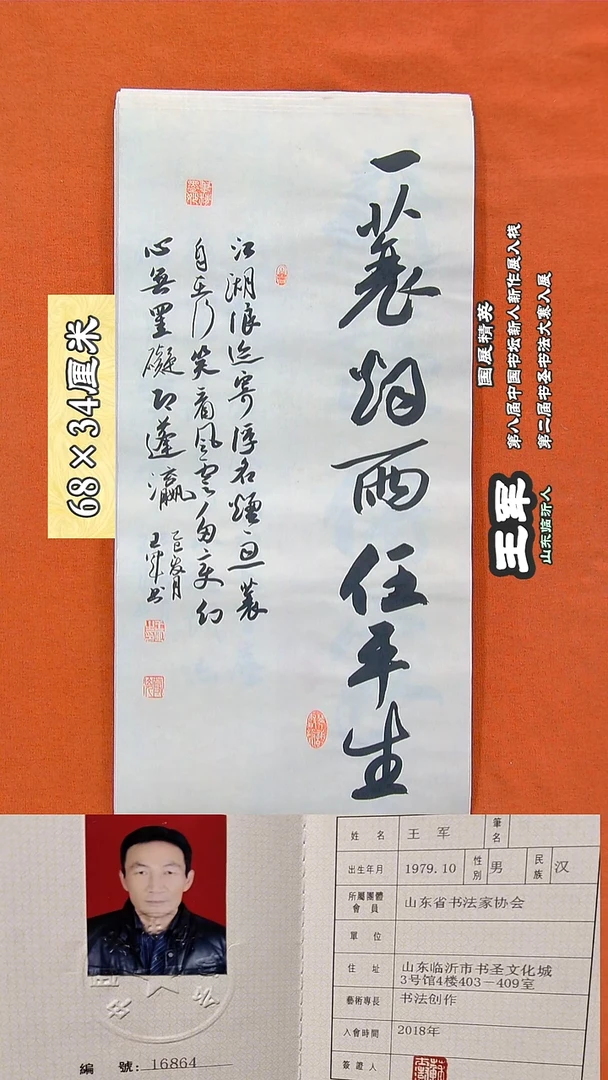 一蓑烟雨任平生
江湖浪迹寄浮名煙雨一蓑
自在行笑看風雲多变幻
心無罣礙即蓬瀛
王军书
68×34厘米
國展精英
第八届中国书坛新人新作展入展
第二届书圣书法大赛入展
王军
山东临沂人
編 號: 16864
姓 名 王 军 筆名
出生年月 1979.10 性別 男 民族 汉
所屬團體會員 山东省书法家协会
單 位
住 址 山东临沂市书圣文化城
3号馆4楼403－409室
藝術專長 书法创作
入會時間 2018年
簽證人